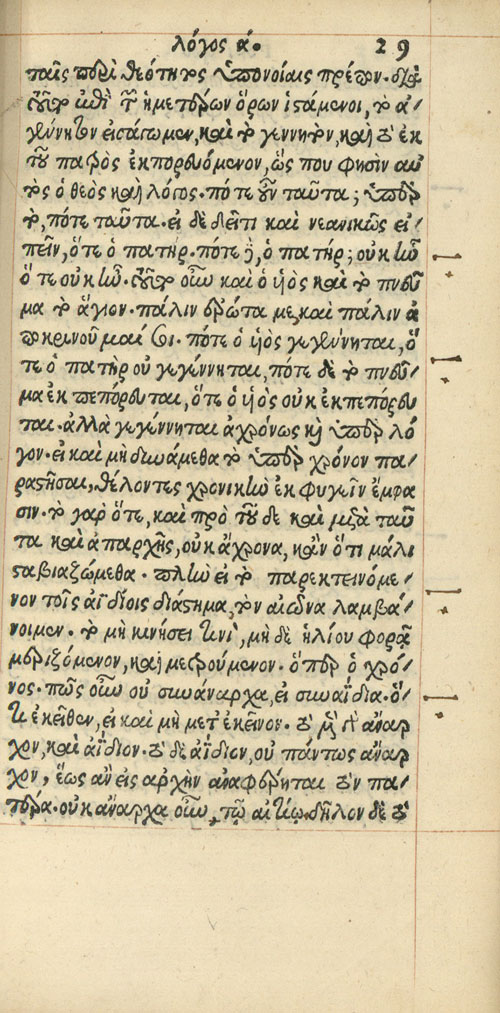 λόγος ά. 29
ταῖς περὶ θεότητος ὑπονοίαις πρέπον. διὰ
τοῦτο ἐπὶ τῶν ἡμετέρων ὅρων ἱστάμενοι, τὸ ἀ
γέννητον εἰσάγωμεν, καὶ τὸ γεννητὸν, καὶ τὸ ἐκ
τοῦ πατρὸς ἐκπορευόμενον, ὥς που φησὶν αὐ
τὸς ὁ θεὸς καὶ λόγος. πότε οὖν ταῦτα; ὑπὲρ
τὸ, πότε ταῦτα. εἰ δὲ δεῖ τι καὶ νεανικῶς εἰ
πεῖν, ὅτε ὁ πατήρ. πότε δὲ, ὁ πατήρ; οὐκ ἦν
ὅτε οὐκ ἦν. τοῦτο οὖν καὶ ὁ υἱὸς καὶ τὸ πνεῦ
μα τὸ ἅγιον. πάλιν ἐρώτα με, καὶ πάλιν ἀ
ποκρινοῦμαί σοι. πότε ὁ υἱὸς γεγέννηται, ὅ
τε ὁ πατὴρ οὐ γεγέννηται, πότε δὲ τὸ πνεῦ
μα ἐκπεπόρευται, ὅτε ὁ υἱὸς οὐκ ἐκπεπόρευ
ται. ἀλλὰ γεγέννηται ἀχρόνως καὶ ὑπὲρ λό
γον. εἰ καὶ μὴ δυνάμεθα τὸ ὑπὲρ χρόνον πα
ραστῆσαι, θέλοντες χρονικὴν ἐκφυγεῖν ἔμφα
σιν. τὸ γὰρ ὅτε, καὶ πρὸ τοῦ δε καὶ μετὰ ταῦ
τα καὶ ἀπαρχῆς, οὐκ ἄχρονα, κἂν ὅτι μάλι
στα βιαζώμεθα. πλὴν εἰ τὸ παρεκτεινόμε
νον τοῖς ἀϊδίοις διάστημα, τὸν αἰῶνα λαμβά
νοιμεν. τὸ μὴ κινήσει τινὶ, μὴ δὲ ἡλίου φορᾷ
μεριζόμενον, καὶ μετρούμενον. ὅπερ ὁ χρό
νος. πῶς οὖν οὐ συνάναρχα, εἰ συναΐδια. ὅ
τι ἐκεῖθεν, εἰ καὶ μὴ μετ' ἐκεῖνον. τὸ μὲν γὰρ ἄναρ
χον, καὶ ἀΐδιον. τὸ δὲ ἀΐδιον, οὐ πάντως ἄναρ
χον, ἕως ἂν εἰς ἀρχὴν ἀναφέρηται τὸν πα
τέρα. οὐκ ἄναρχα οὖν, τῷ αἰτίῳ. δῆλον δὲ τὸ